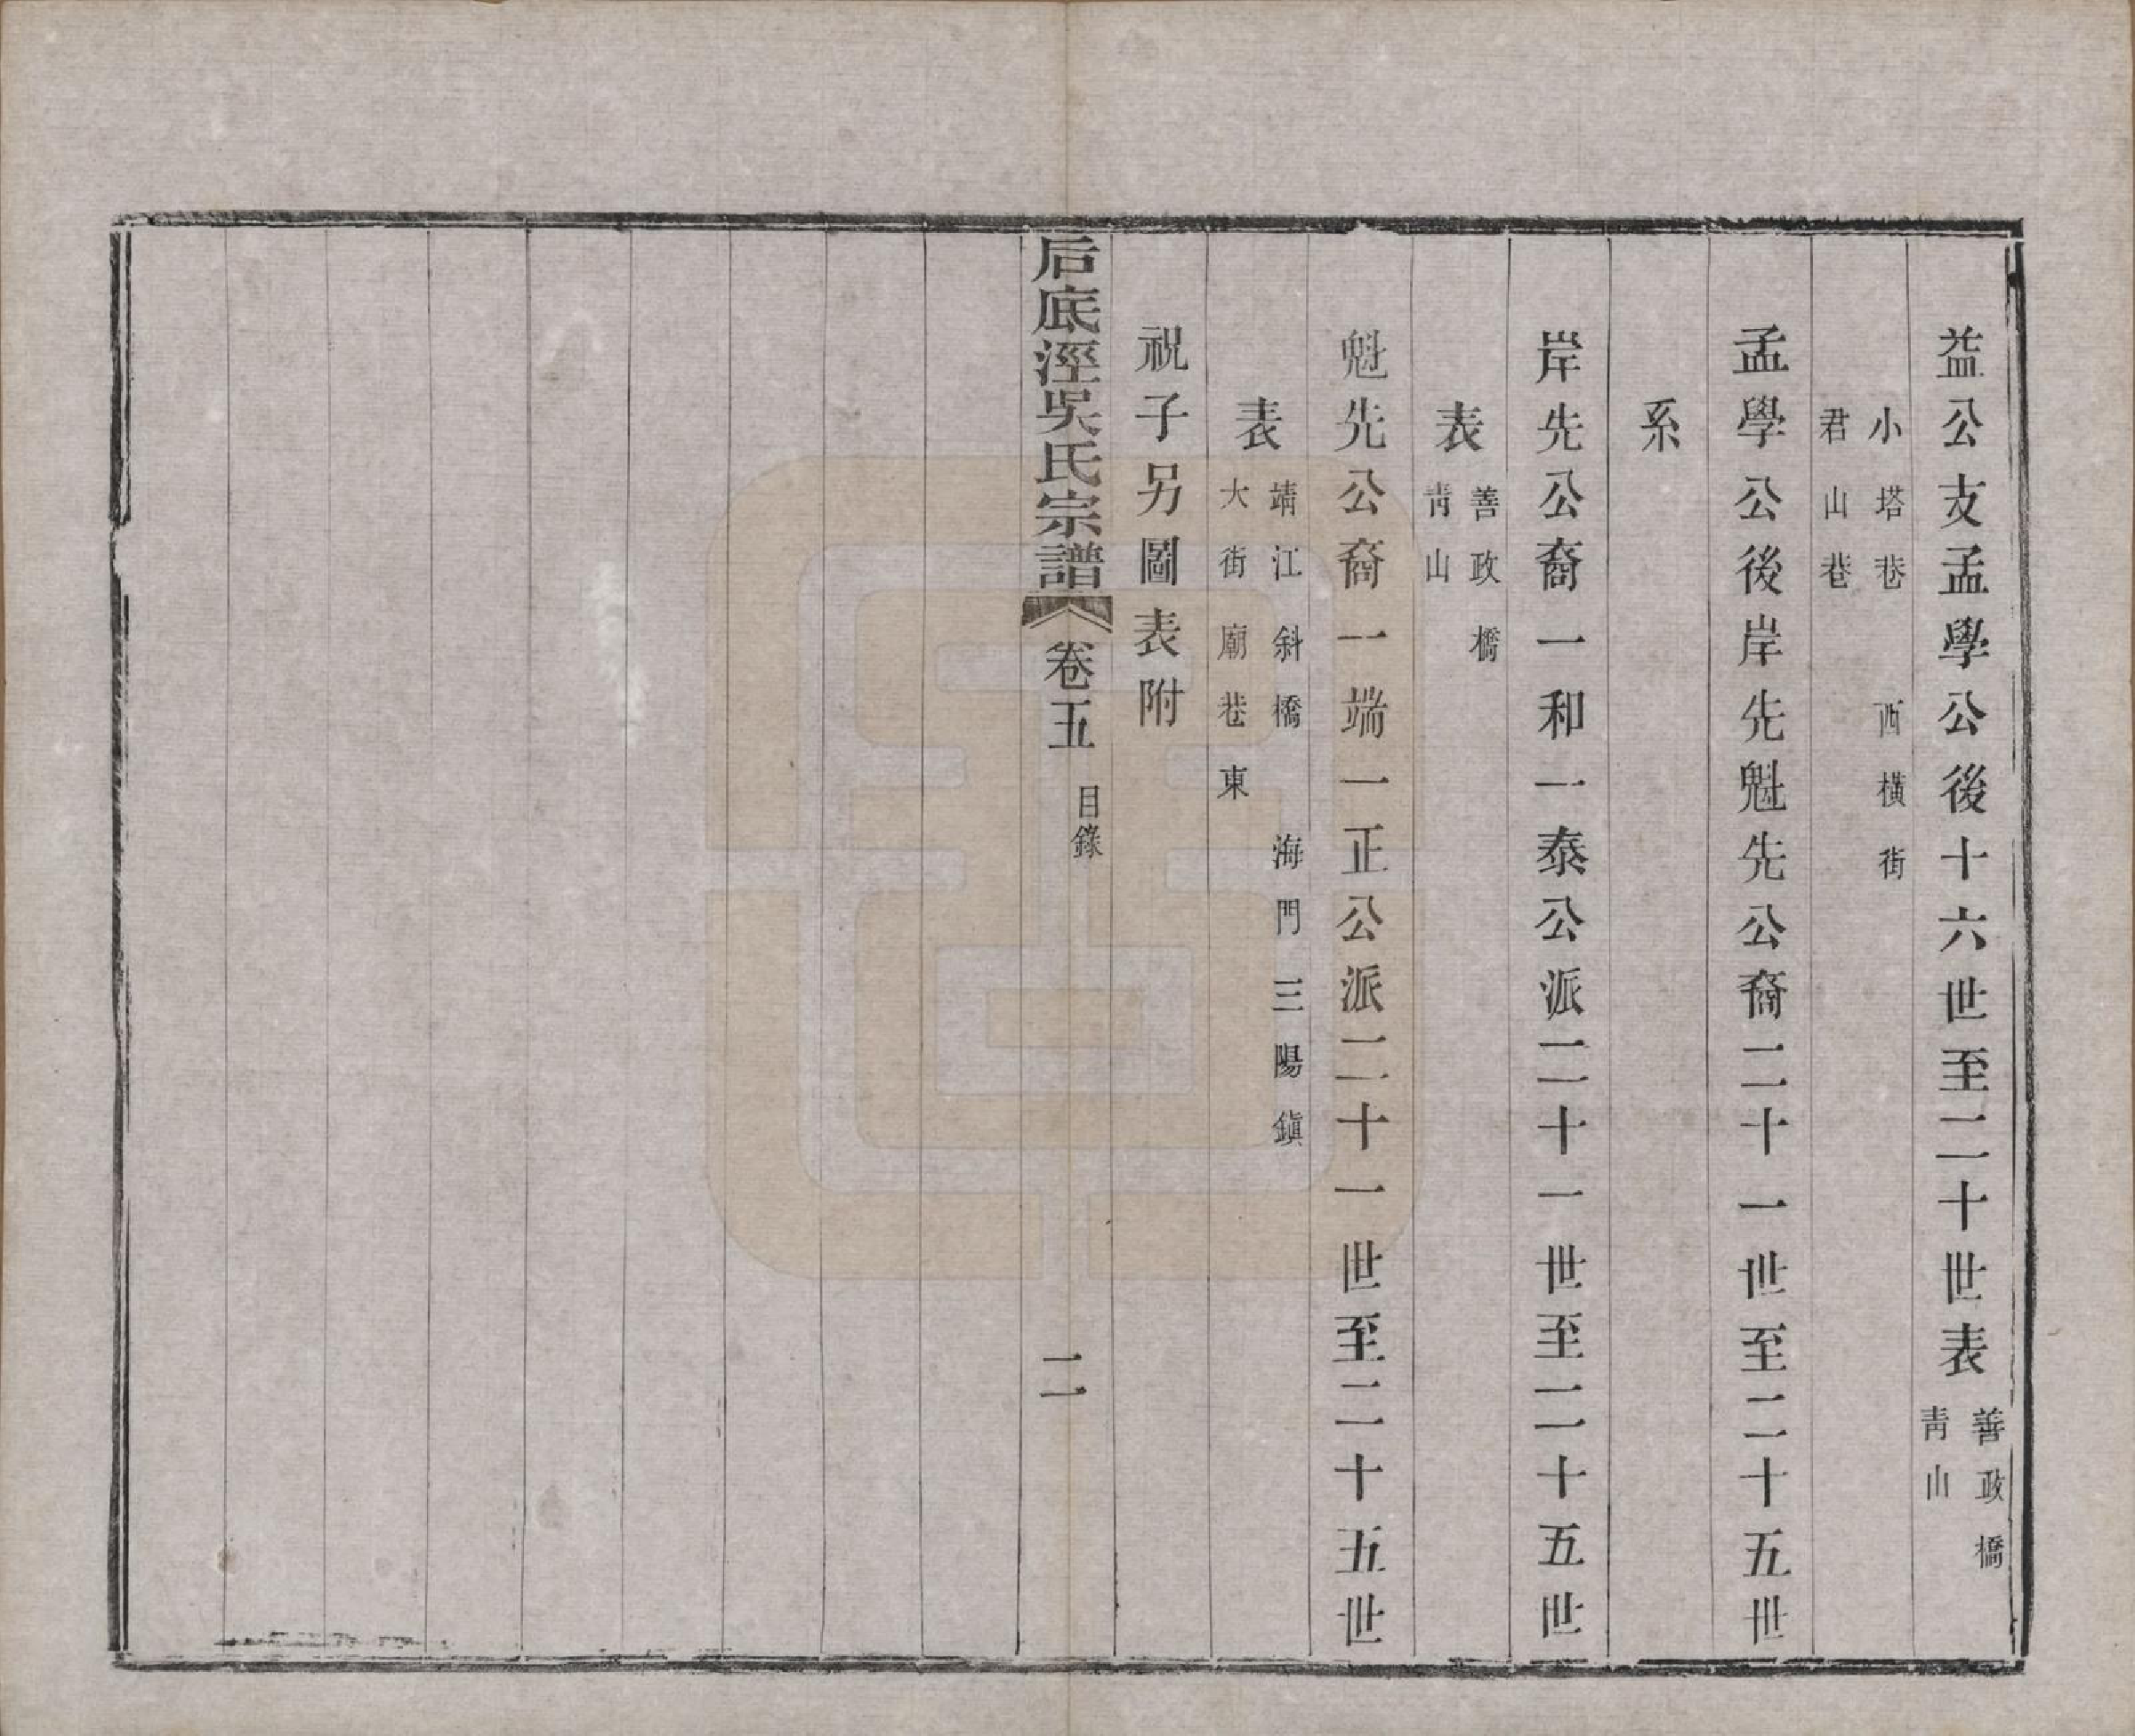 益公支孟學公後十六世至二十世表
善政橋
青山
小塔巷 西橫街
君山巷
孟學公後岸先魁先公裔二十一世至二十五世
系
岸先公裔一和一泰公派二十一世至二十五世
表
善政橋
青山
魁先公裔一端一正公派二十一世至二十五世
表
靖江斜橋 海門三陽鎮
大街廟巷東
祝子另圖表附
后底涇吳氏宗譜 卷五 目錄 二